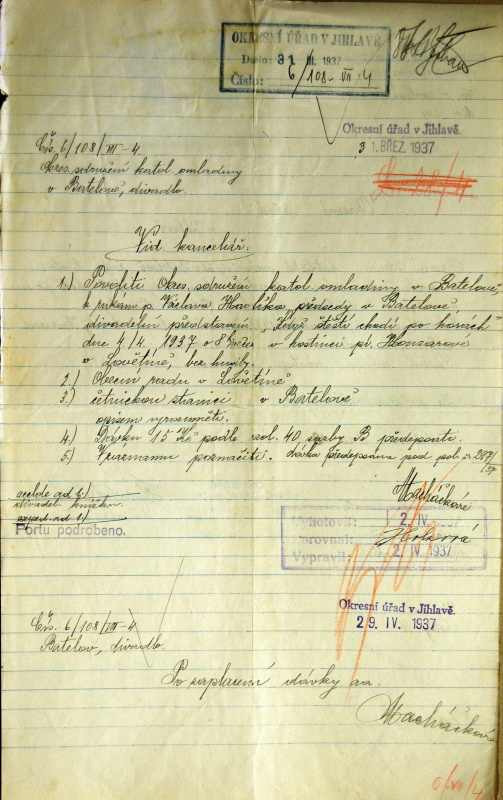 OKRESNÍ ÚŘAD V JIHLAVĚ
Došlo: 31 III. 1937
Číslo: 6/108-VII-4
Okresní úřad v Jihlavě.
31. BŘEZ. 1937
Čís. 6/108/VII-4.
Okres. sdružení katol. omladiny
v Batelově, divadlo.
Vid. kancelář.
1.) Povoliti Okres. sdružení katol omladiny v Batelově
k rukám p. Václava Havlíka, předsedy v Batelově
divadelní představení „Když štěstí chodí po horách"
dne 4/4. 1937 o 8 hod. v hostinci pí. Honzarové
v Lovětíně, bez hudby.
2.) Obecní radu v Lovětíně
3.) četnickou stanici v Batelově
opisem vyrozuměti.
4.) Dávku 15 Kč podle pol. 40, sazby B předepsati.
5.) V seznamu poznačiti. dávka předepsána pod pol. 287/37
Macháčková
Portu podrobeno.
Vyhotovil: 2. IV. 1937
Porovnal:
Vypravil: 2. IV. 1937
Okresní úřad v Jihlavě.
29. IV. 1937
Čís. 6/108/VII-4
Batelov, divadlo.
Po zaplacení dávky aa.
Macháčková
6/VII/4